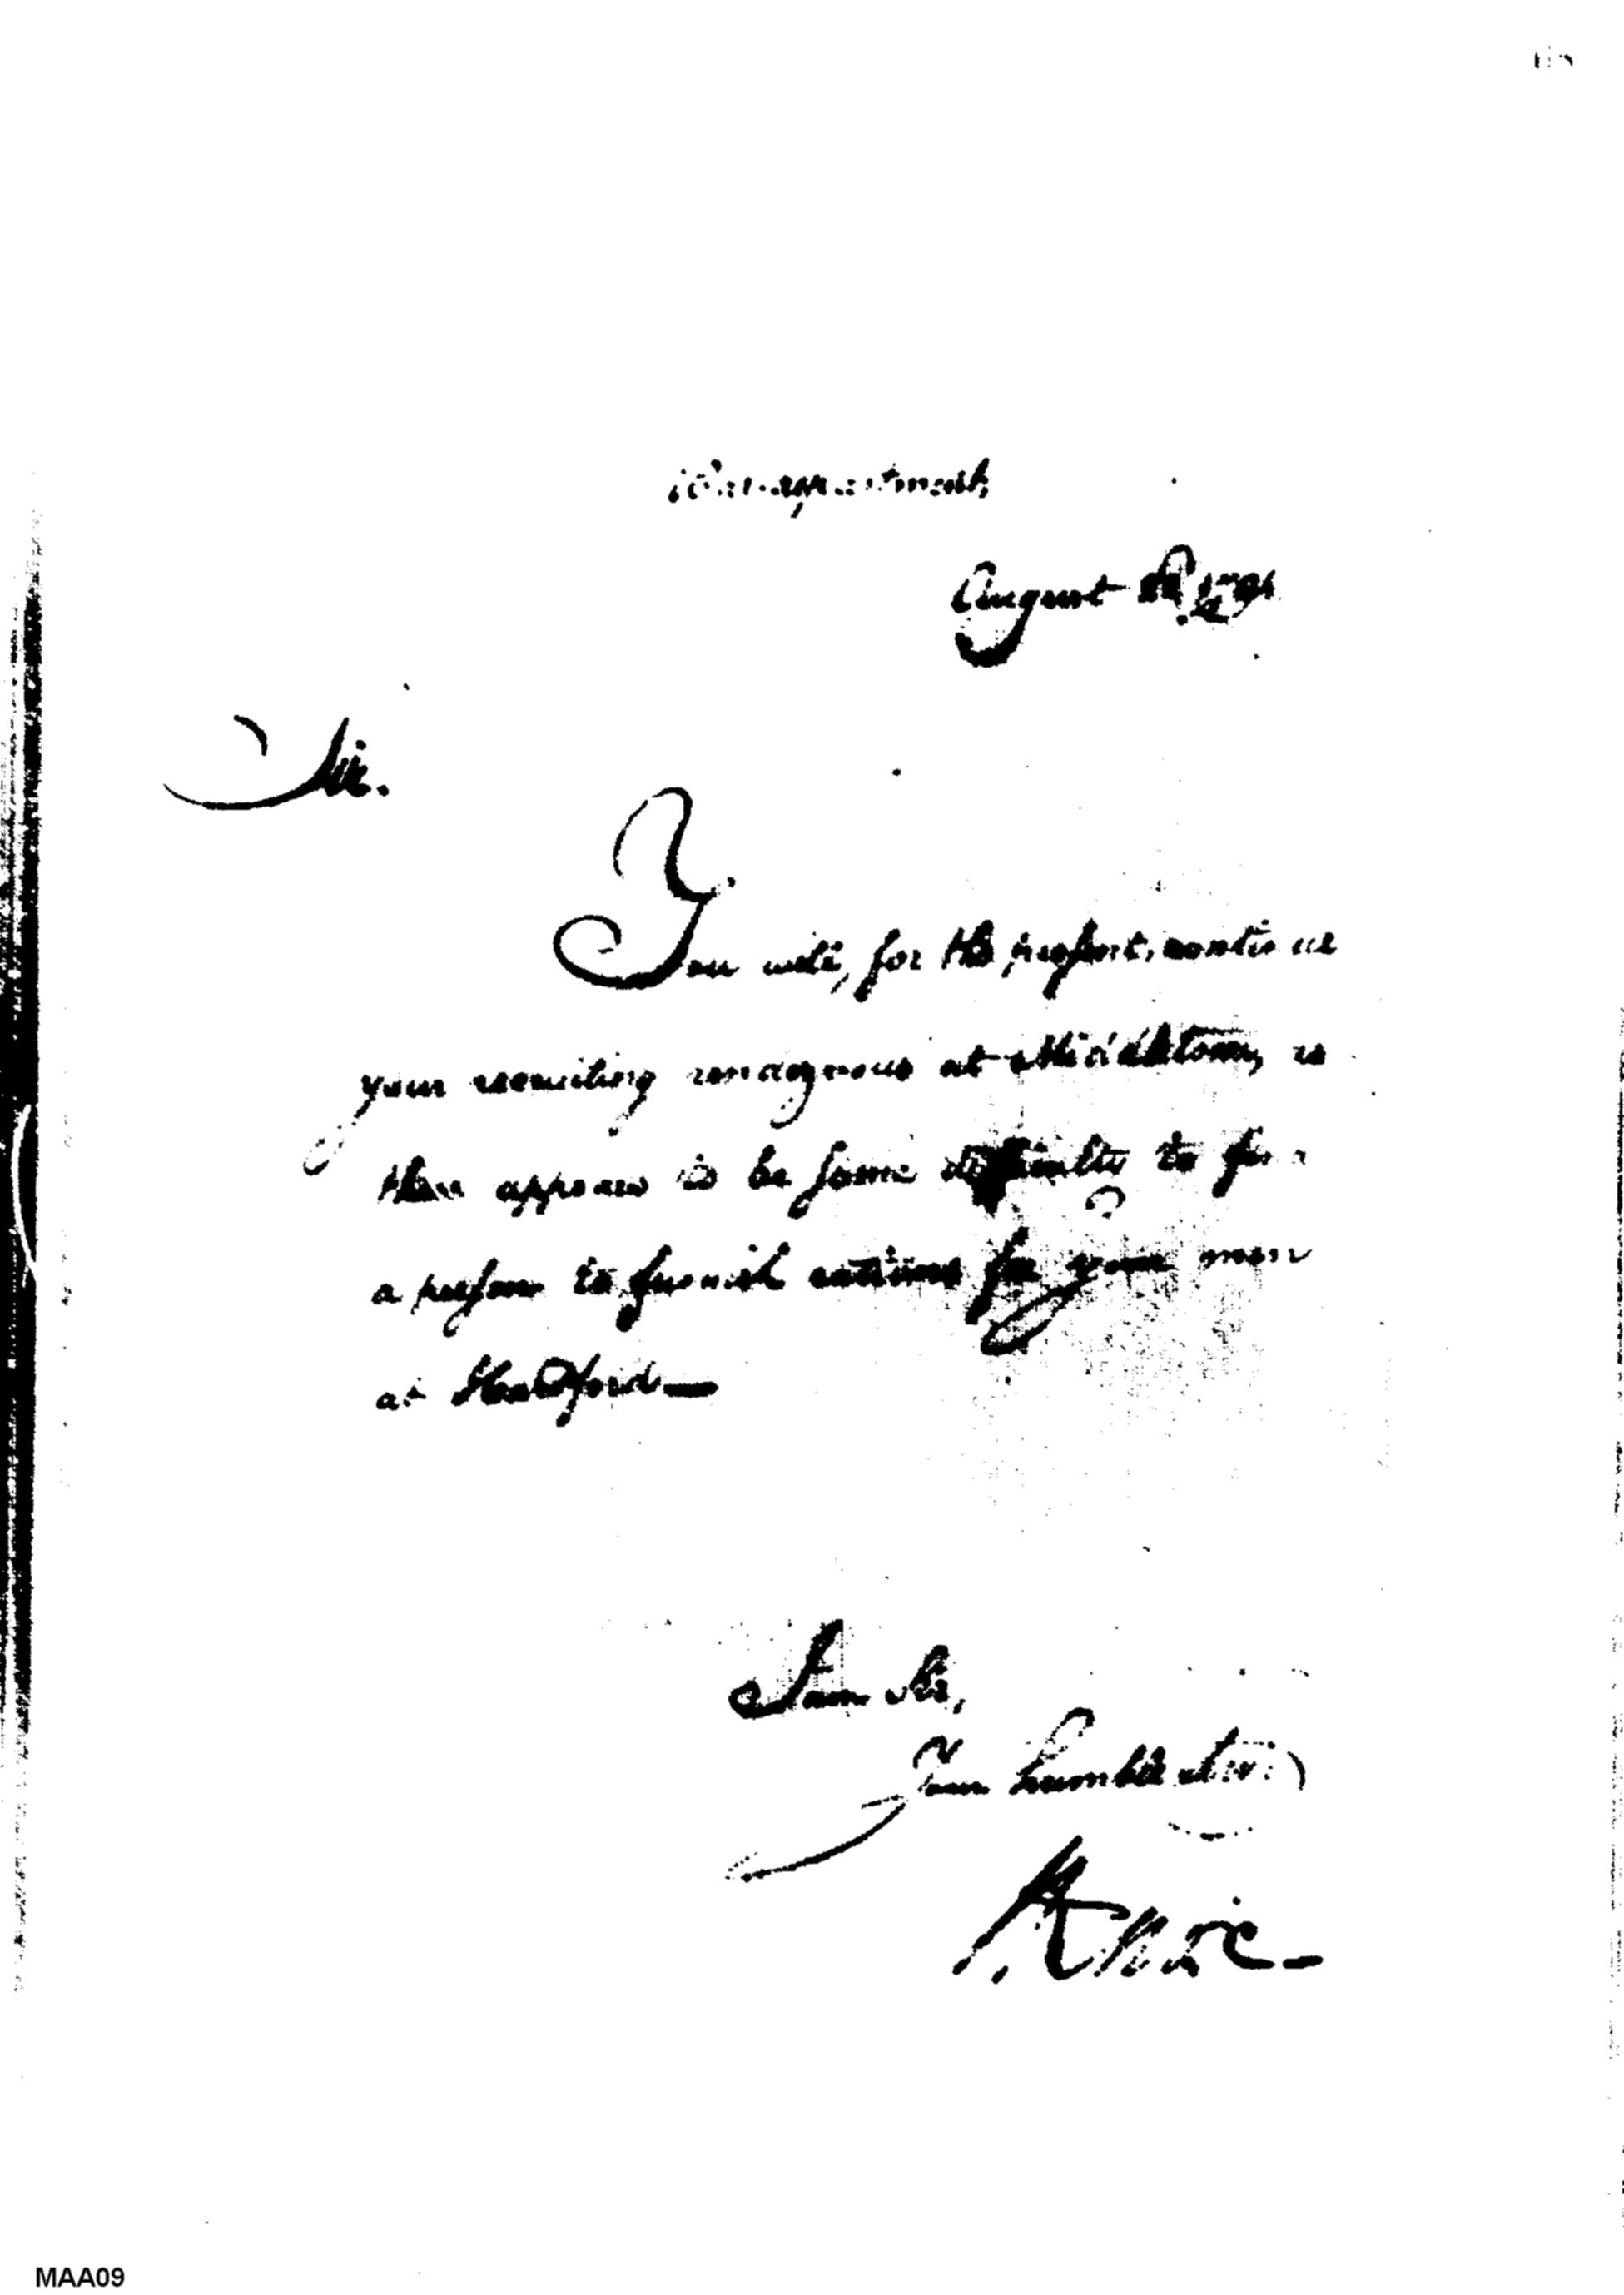 War department
August 1791
Sir.
You will, for the present, continue
your recruiting rendezvous at Middletown, as
there appears to be some difficulty to for
a person to furnish rations for your men
at Hartford—
I am Sir,
Your humble Serv
HKnox
MAA09